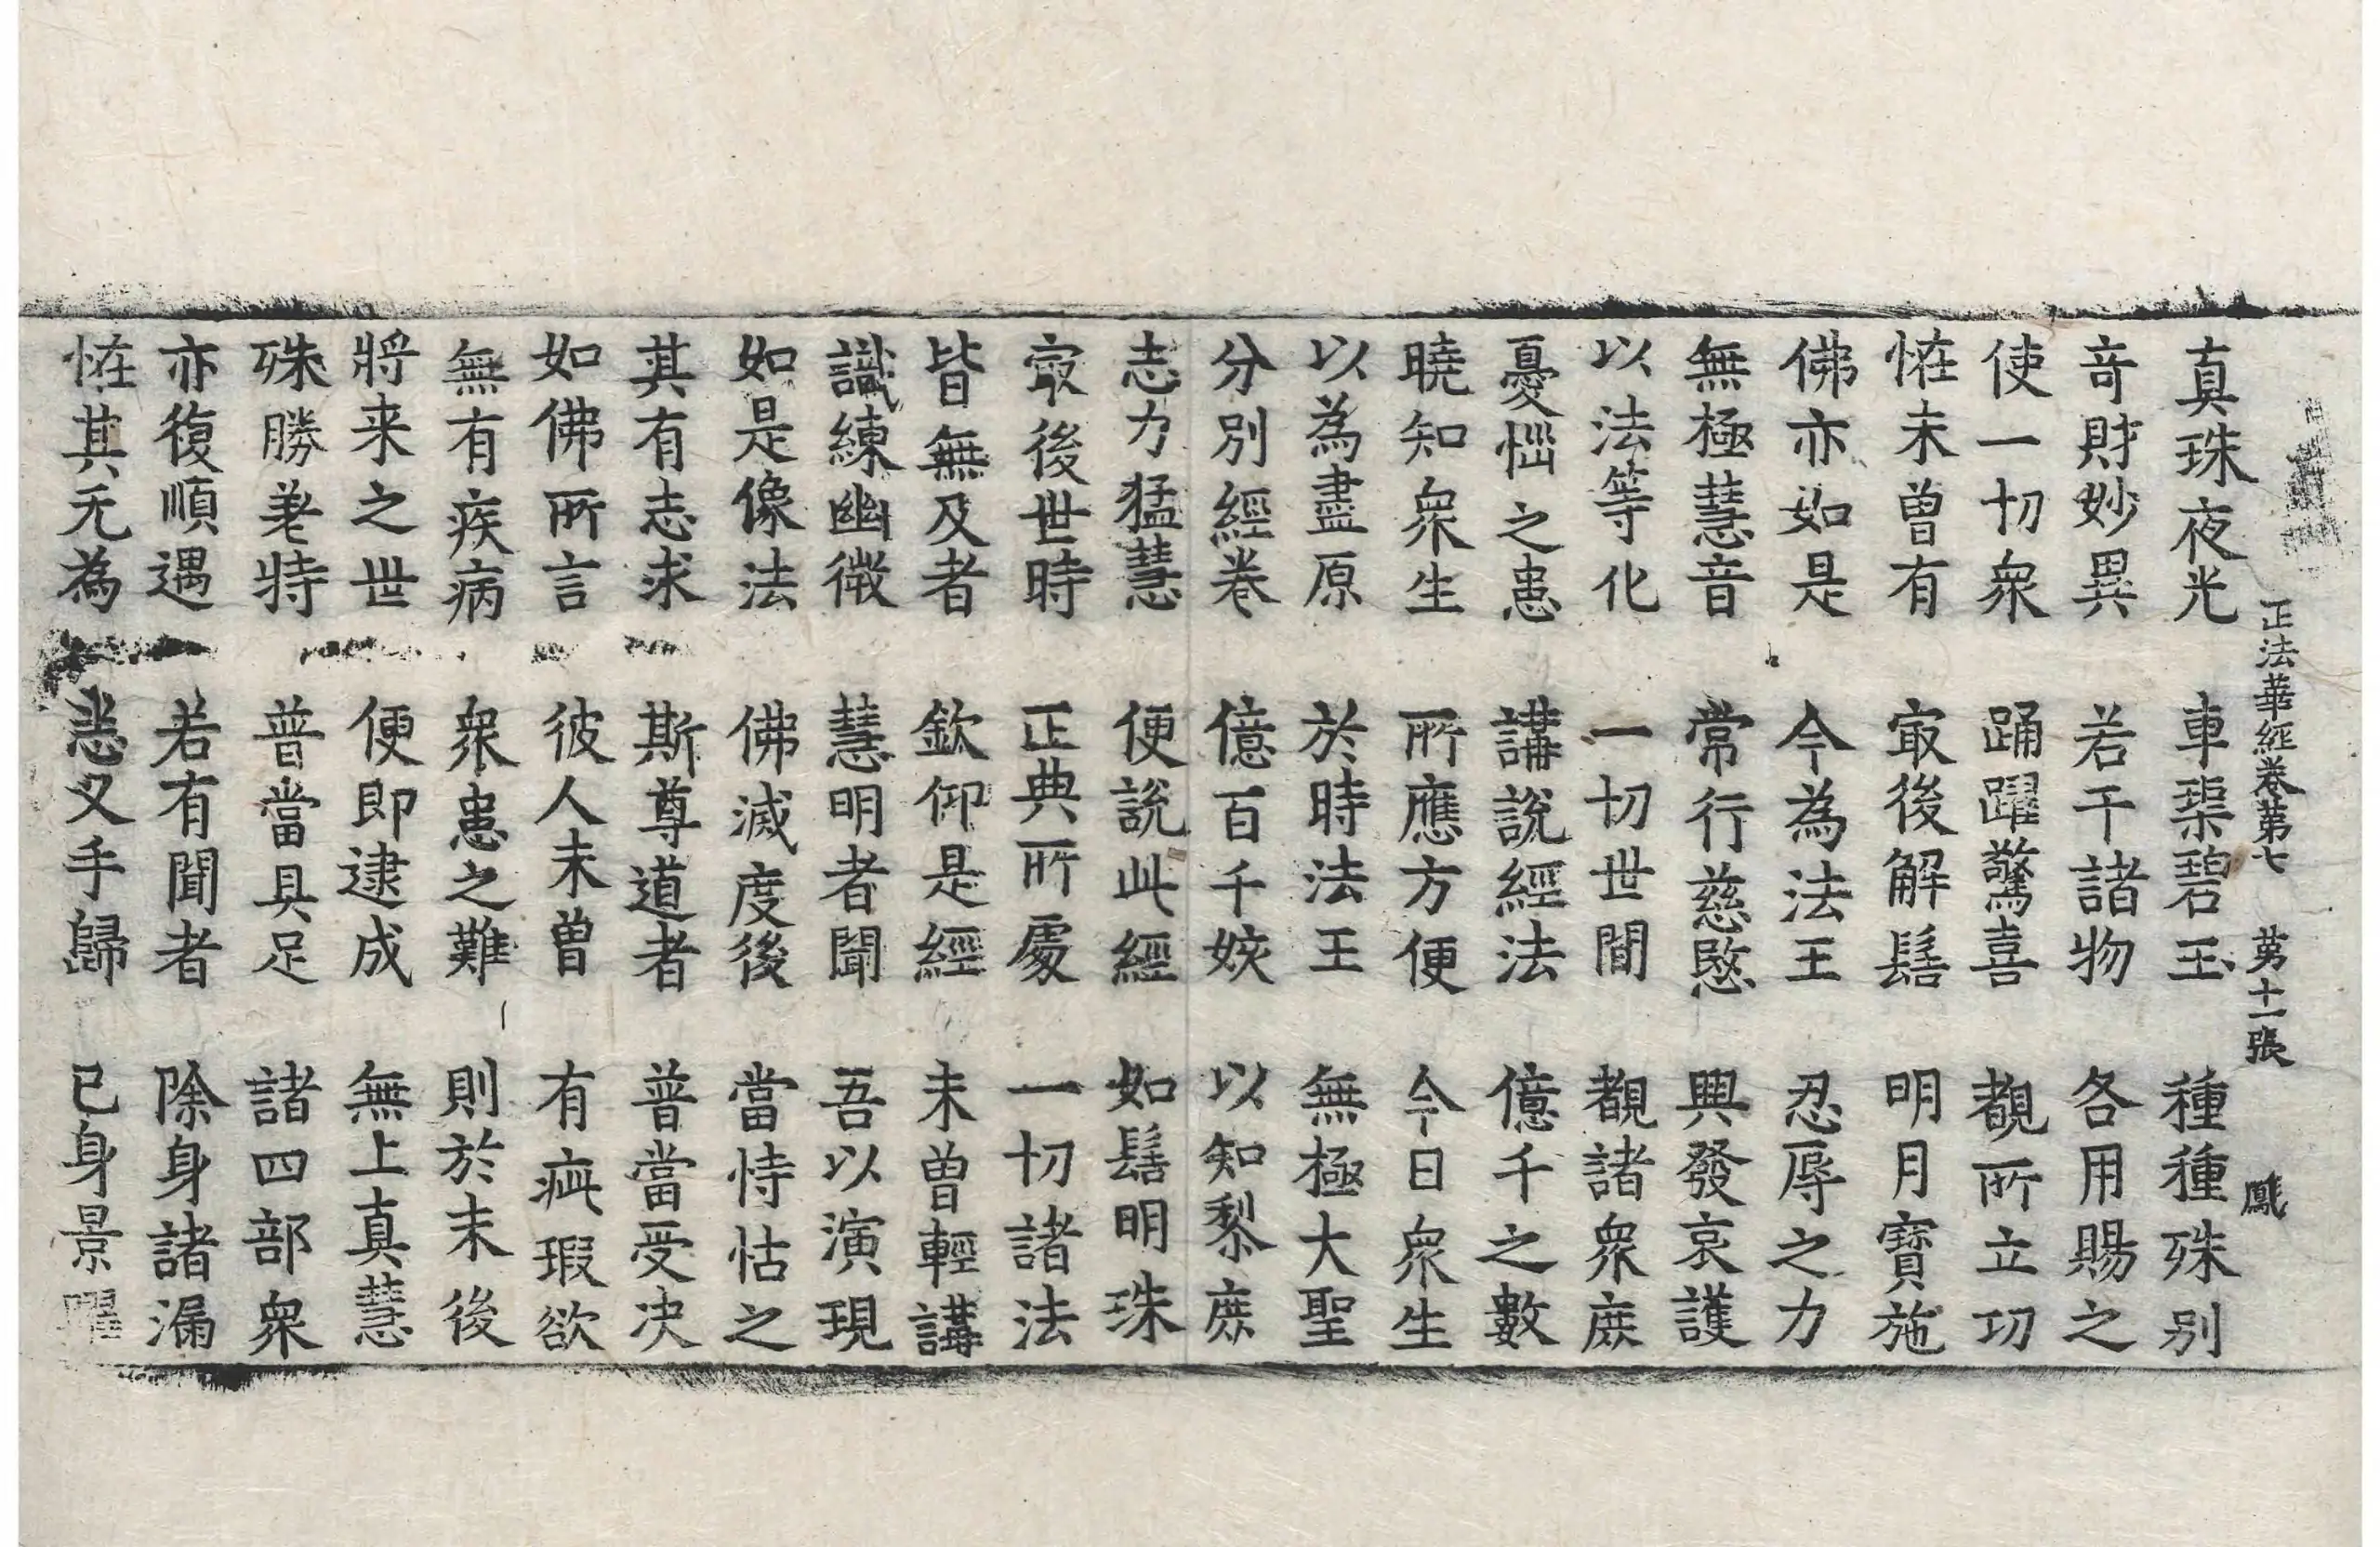 正法華經卷第七　第十一張　鳳
真珠夜光　車璖碧玉　種種殊別
奇財妙異　若干諸物　各用賜之
使一切衆　踊躍驚喜　覩所立功
恠未曽有　㝡後解髻　明月寶施
佛亦如是　今為法王　忍辱之力
無極慧音　常行慈愍　興發哀護
以法等化　一切世間　覩諸衆庶
憂惱之患　講說經法　億千之數
曉知衆生　所應方便　今日衆生
以為盡原　於時法王　無極大聖
分別經卷　億百千姟　以知黎庶
志力猛慧　便說此經　如髻明珠
㝡後世時　正典所處　一切諸法
皆無及者　欽仰是經　未曽輕講
識練幽微　慧明者聞　吾以演現
如是像法　佛滅度後　當恃怙之
其有志求　斯尊道者　普當受决
如佛所言　彼人未曽　有疵瑕欲
無有疾病　衆患之難　則於末後
將来之世　便即逮成　無上真慧
殊勝㛐特　普當具足　諸四部衆
亦復順遇　若有聞者　除身諸漏
恠其无為　恙叉手歸　已身景躍